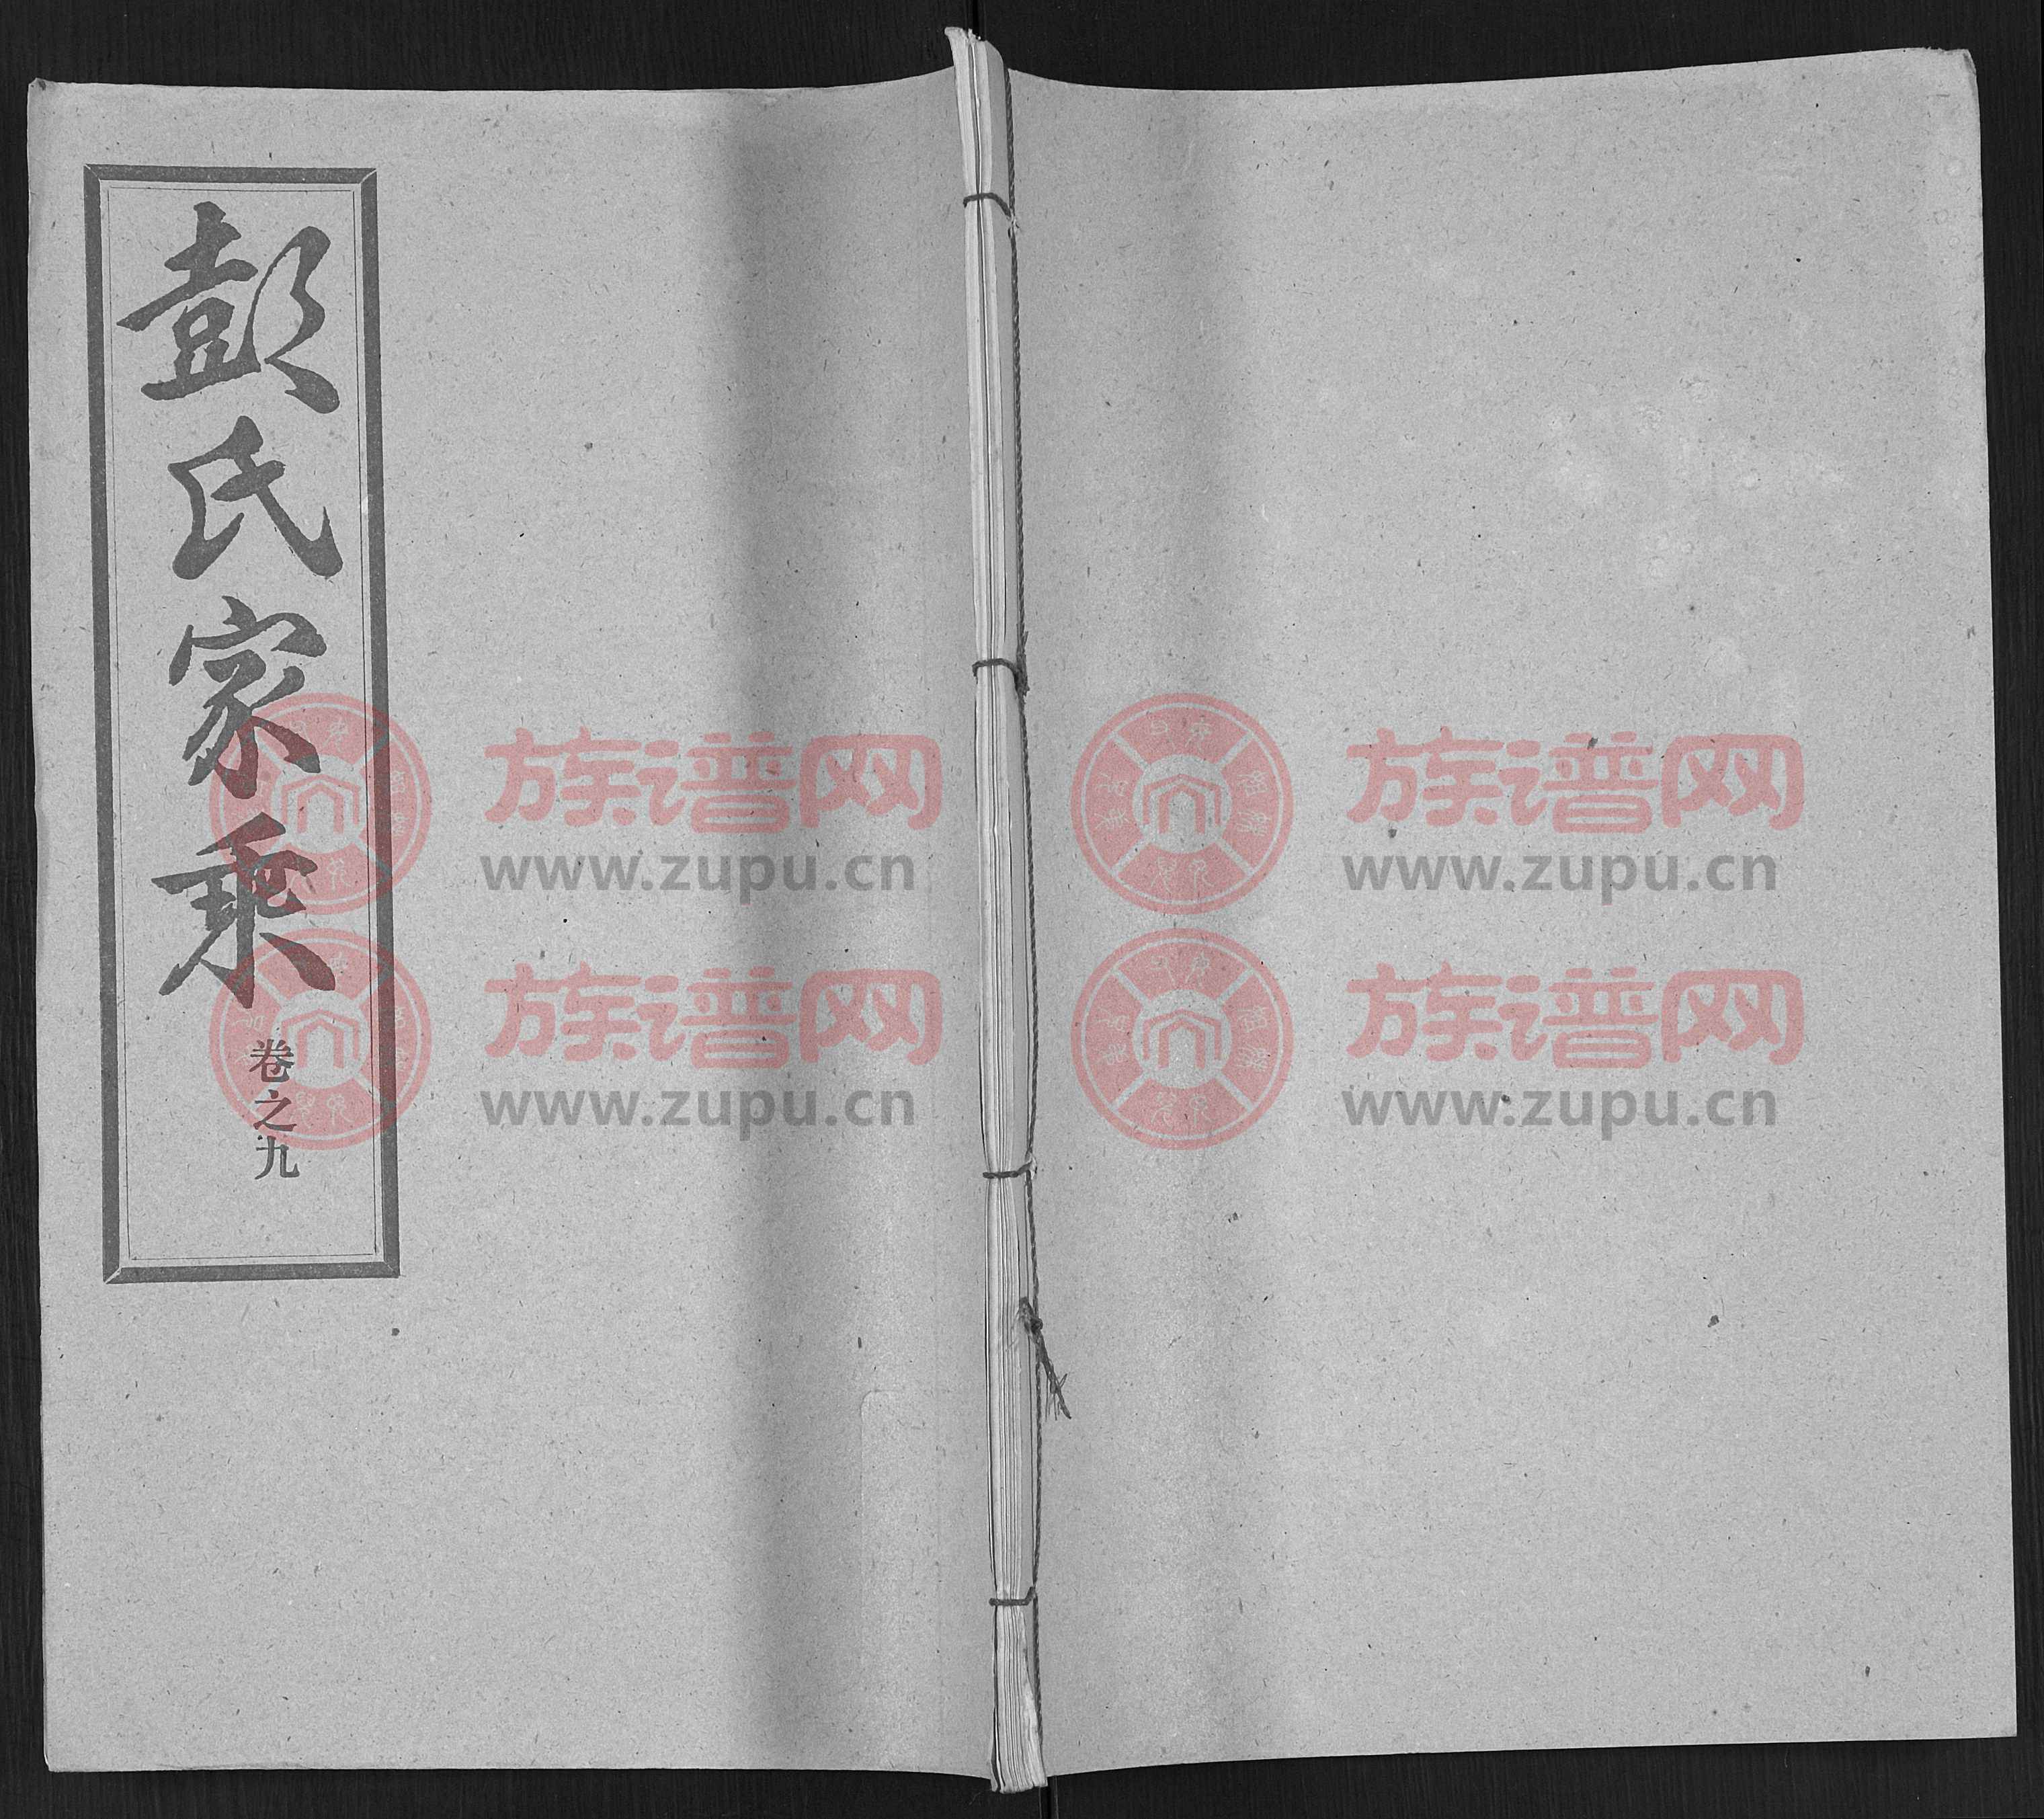 彭氏家乘
卷之九
族谱网
www.zupu.cn
族谱网
www.zupu.cn
族谱网
www.zupu.cn
族谱网
www.zupu.cn